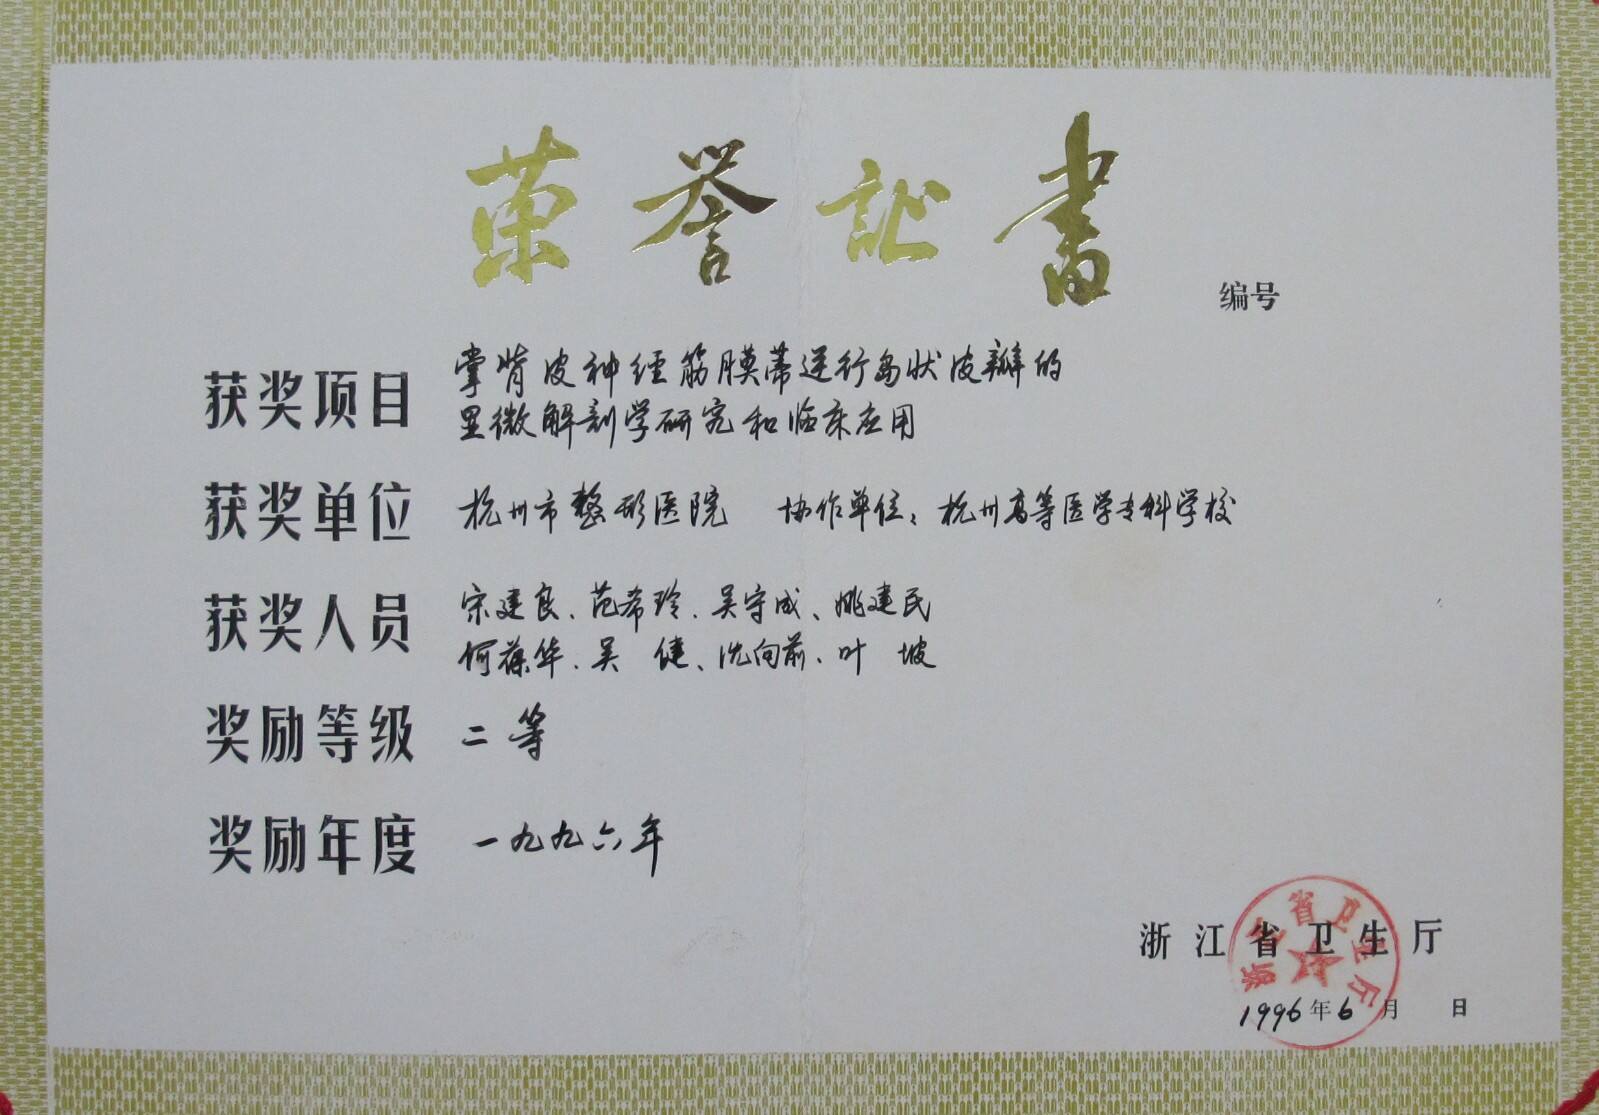 荣誉証书
编号
获奖项目 掌背皮神经筋膜蒂逆行岛状皮瓣的
显微解剖学研究和临床应用
获奖单位 杭州市整形医院 协作单位：杭州高等医学专科学校
获奖人员 宋建良、范希玲、吴守成、姚建民
何葆华、吴 健、沈向前、叶 坡
奖励等级 二等
奖励年度 一九九六年
浙江省卫生厅
浙江省卫生厅
1996年6月 日